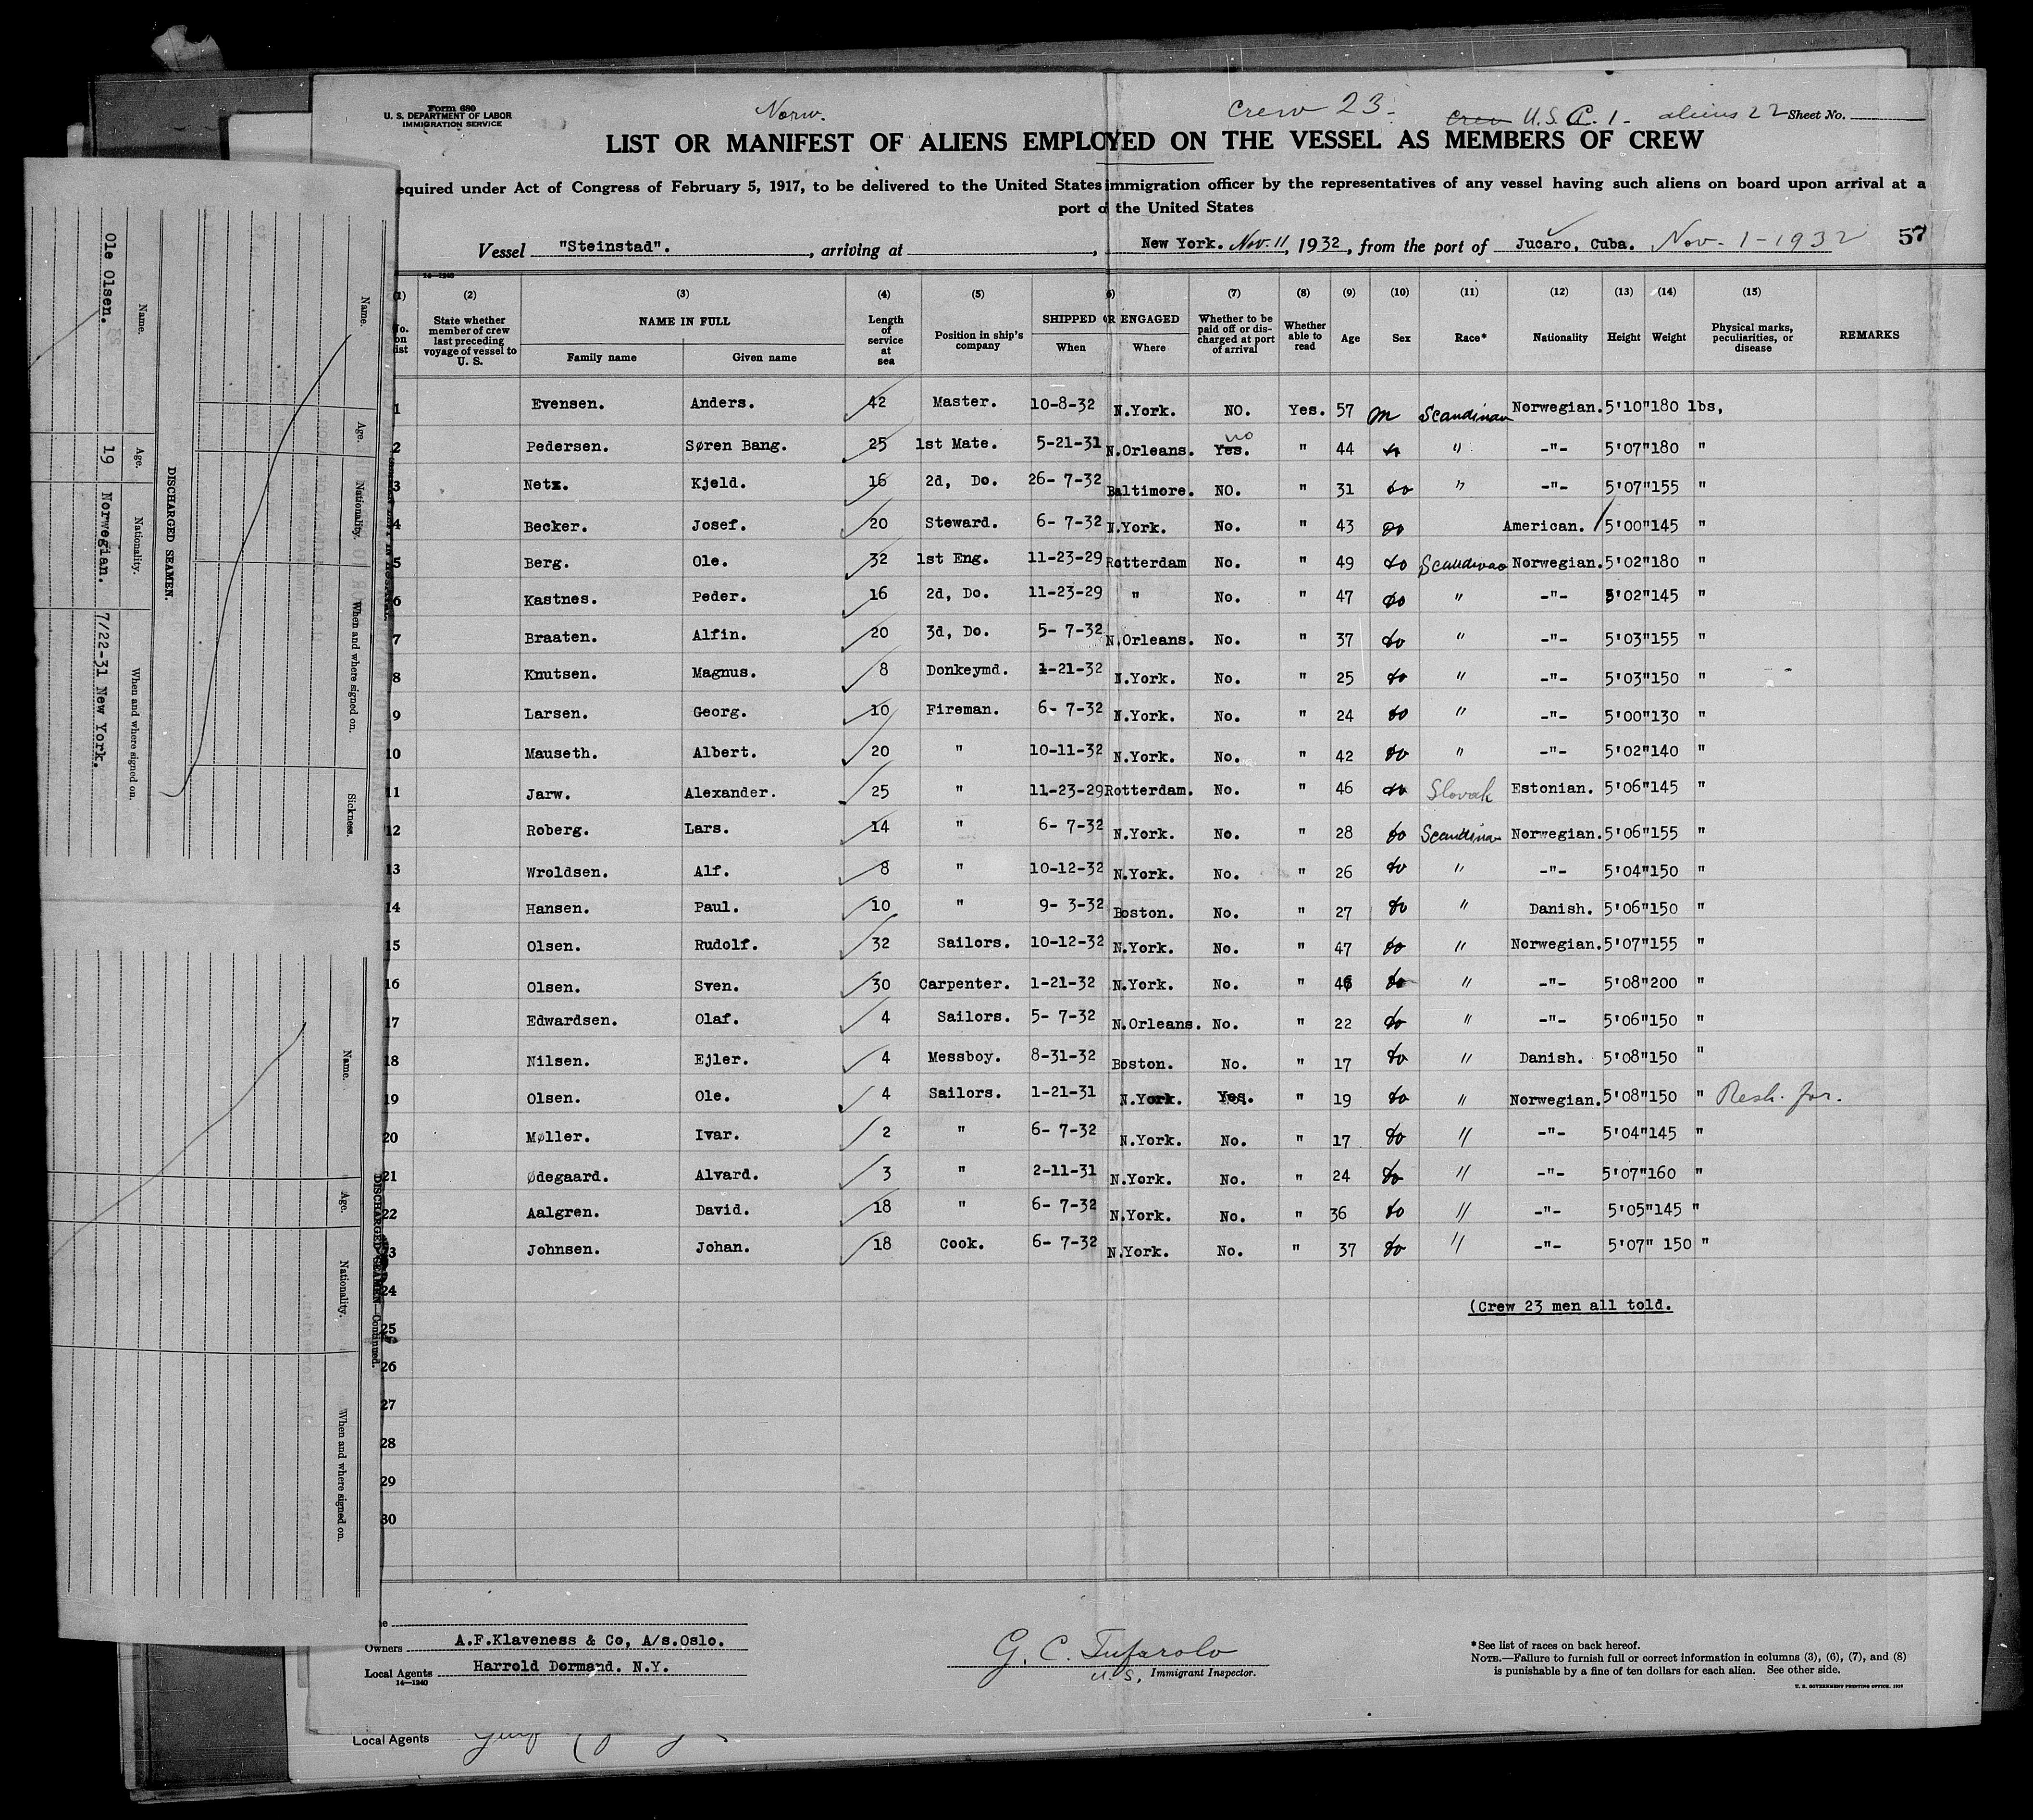 Form 680
U. S. DEPARTMENT OF LABOR
IMMIGRATION SERVICE
Norw.
Crew 23-
Crew U.S.C. 1- aliens 22 Sheet No.
LIST OR MANIFEST OF ALIENS EMPLOYED ON THE VESSEL AS MEMBERS OF CREW
equired under Act of Congress of February 5, 1917, to be delivered to the United States immigration officer by the representatives of any vessel having such aliens on board upon arrival at a
port of the United States
Vessel "Steinstad". , arriving at , New York. Nov. 11, 1932, from the port of Jucaro, Cuba. Nov. 1-1932 57
14—1240
(1) (2) (3) (4) (5) (6) (7) (8) (9) (10) (11) (12) (13) (14) (15)
No. on list State whether member of crew last preceding voyage of vessel to U. S. NAME IN FULL Family name Given name Length of service at sea Position in ship's company SHIPPED OR ENGAGED When Where Whether to be paid off or discharged at port of arrival Whether able to read Age Sex Race* Nationality Height Weight Physical marks, peculiarities, or disease REMARKS
1 Evensen. Anders. 42 Master. 10-8-32 N.York. NO. Yes. 57 m Scandinav Norwegian. 5'10" 180 lbs,
2 Pedersen. Søren Bang. 25 1st Mate. 5-21-31 N.Orleans. Yes. no " 44 do " -"- 5'07" 180 "
3 Netx. Kjeld. 16 2d, Do. 26- 7-32 Baltimore. NO. " 31 do " -"- 5'07" 155 "
4 Becker. Josef. 20 Steward. 6- 7-32 N.York. No. " 43 do American. 5'00" 145 "
5 Berg. Ole. 32 1st Eng. 11-23-29 Rotterdam No. " 49 do Scandinav Norwegian. 5'02" 180 "
6 Kastnes. Peder. 16 2d, Do. 11-23-29 " No. " 47 do " -"- 5'02" 145 "
7 Braaten. Alfin. 20 3d, Do. 5- 7-32 N.Orleans. No. " 37 do " -"- 5'03" 155 "
8 Knutsen. Magnus. 8 Donkeymd. 1-21-32 N.York. No. " 25 do " -"- 5'03" 150 "
9 Larsen. Georg. 10 Fireman. 6- 7-32 N.York. No. " 24 do " -"- 5'00" 130 "
10 Mauseth. Albert. 20 " 10-11-32 N.York. No. " 42 do " -"- 5'02" 140 "
11 Jarw. Alexander. 25 " 11-23-29 Rotterdam. No. " 46 do Slovak Estonian. 5'06" 145 "
12 Roberg. Lars. 14 " 6- 7-32 N.York. No. " 28 do Scandinav Norwegian. 5'06" 155 "
13 Wroldsen. Alf. 8 " 10-12-32 N.York. No. " 26 do " -"- 5'04" 150 "
14 Hansen. Paul. 10 " 9- 3-32 Boston. No. " 27 do " Danish. 5'06" 150 "
15 Olsen. Rudolf. 32 Sailors. 10-12-32 N.York. No. " 47 do " Norwegian. 5'07" 155 "
16 Olsen. Sven. 30 Carpenter. 1-21-32 N.York. No. " 46 do " -"- 5'08" 200 "
17 Edwardsen. Olaf. 4 Sailors. 5- 7-32 N.Orleans. No. " 22 do " -"- 5'06" 150 "
18 Nilsen. Ejler. 4 Messboy. 8-31-32 Boston. No. " 17 do " Danish. 5'08" 150 "
19 Olsen. Ole. 4 Sailors. 1-21-31 N.York. Yes. " 19 do " Norwegian. 5'08" 150 "
20 Møller. Ivar. 2 " 6- 7-32 N.York. No. " 17 do " -"- 5'04" 145 "
21 Ødegaard. Alvard. 3 " 2-11-31 N.York. No. " 24 do " -"- 5'07" 160 "
22 Aalgren. David. 18 " 6- 7-32 N.York. No. " 36 do " -"- 5'05" 145 "
23 Johnsen. Johan. 18 Cook. 6- 7-32 N.York. No. " 37 do " -"- 5'07" 150 "
24
(Crew 23 men all told.
25
26
27
28
29
30
Owners A.F.Klaveness & Co, A/s.Oslo.
Local Agents Harrold Dormand. N.Y.
14—1240
G. C. Tufarolo
U.S. Immigrant Inspector.
*See list of races on back hereof.
NOTE.—Failure to furnish full or correct information in columns (3), (6), (7), and (8)
is punishable by a fine of ten dollars for each alien. See other side.
U. S. GOVERNMENT PRINTING OFFICE: 1929
Local Agents
DISCHARGED SEAMEN.
Name. Age. Nationality. When and where signed on.
Ole Olsen. 19 Norwegian. 7/22-31 New York.
Name. Age. Nationality. When and where signed on. Sickness.
DISCHARGED SEAMEN—Continued.
Name. Age. Nationality. When and where signed on.